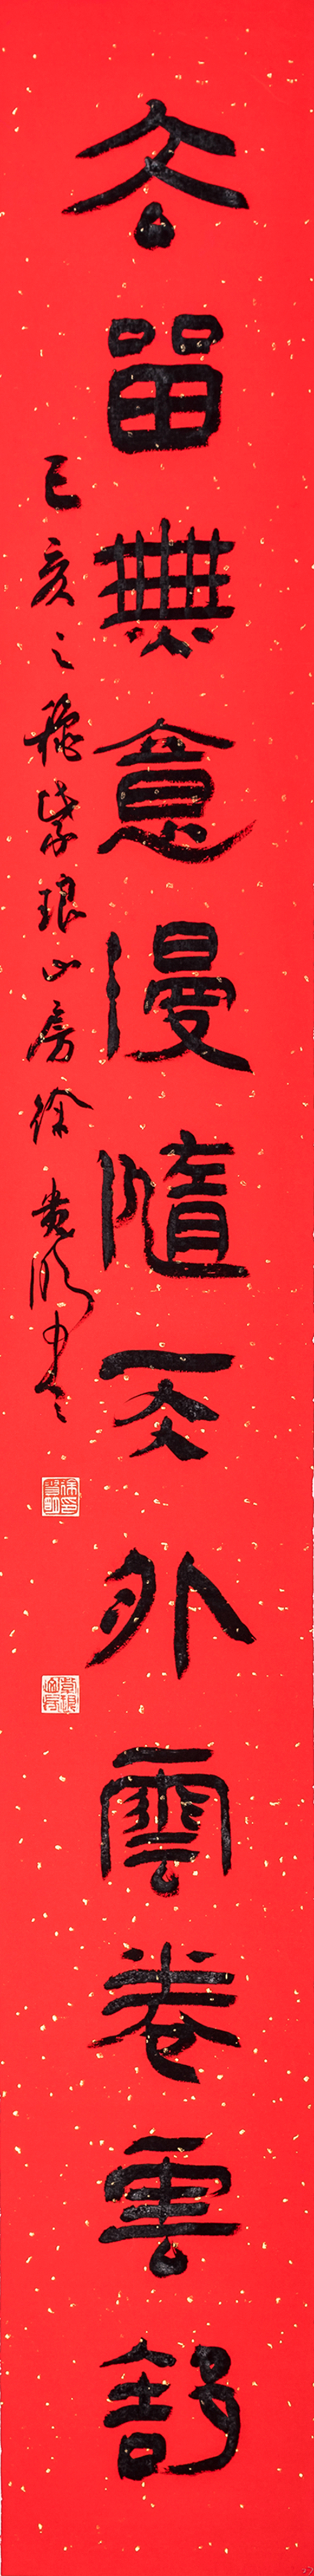 去留無意漫隨天外雲卷雲舒
己亥之秋紫琅山房徐貴明書